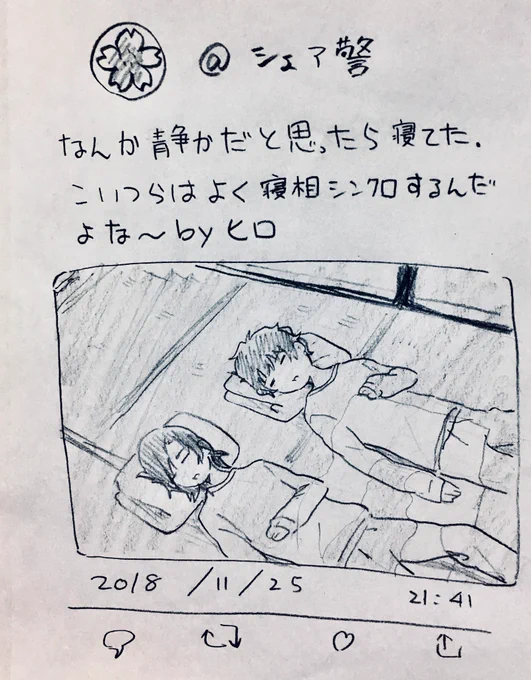 @ シェア警
なんか静かだと思ったら寝てた.
こいつらはよく寝相シンクロするんだ
よな〜byヒロ
2018/11/25
21:41